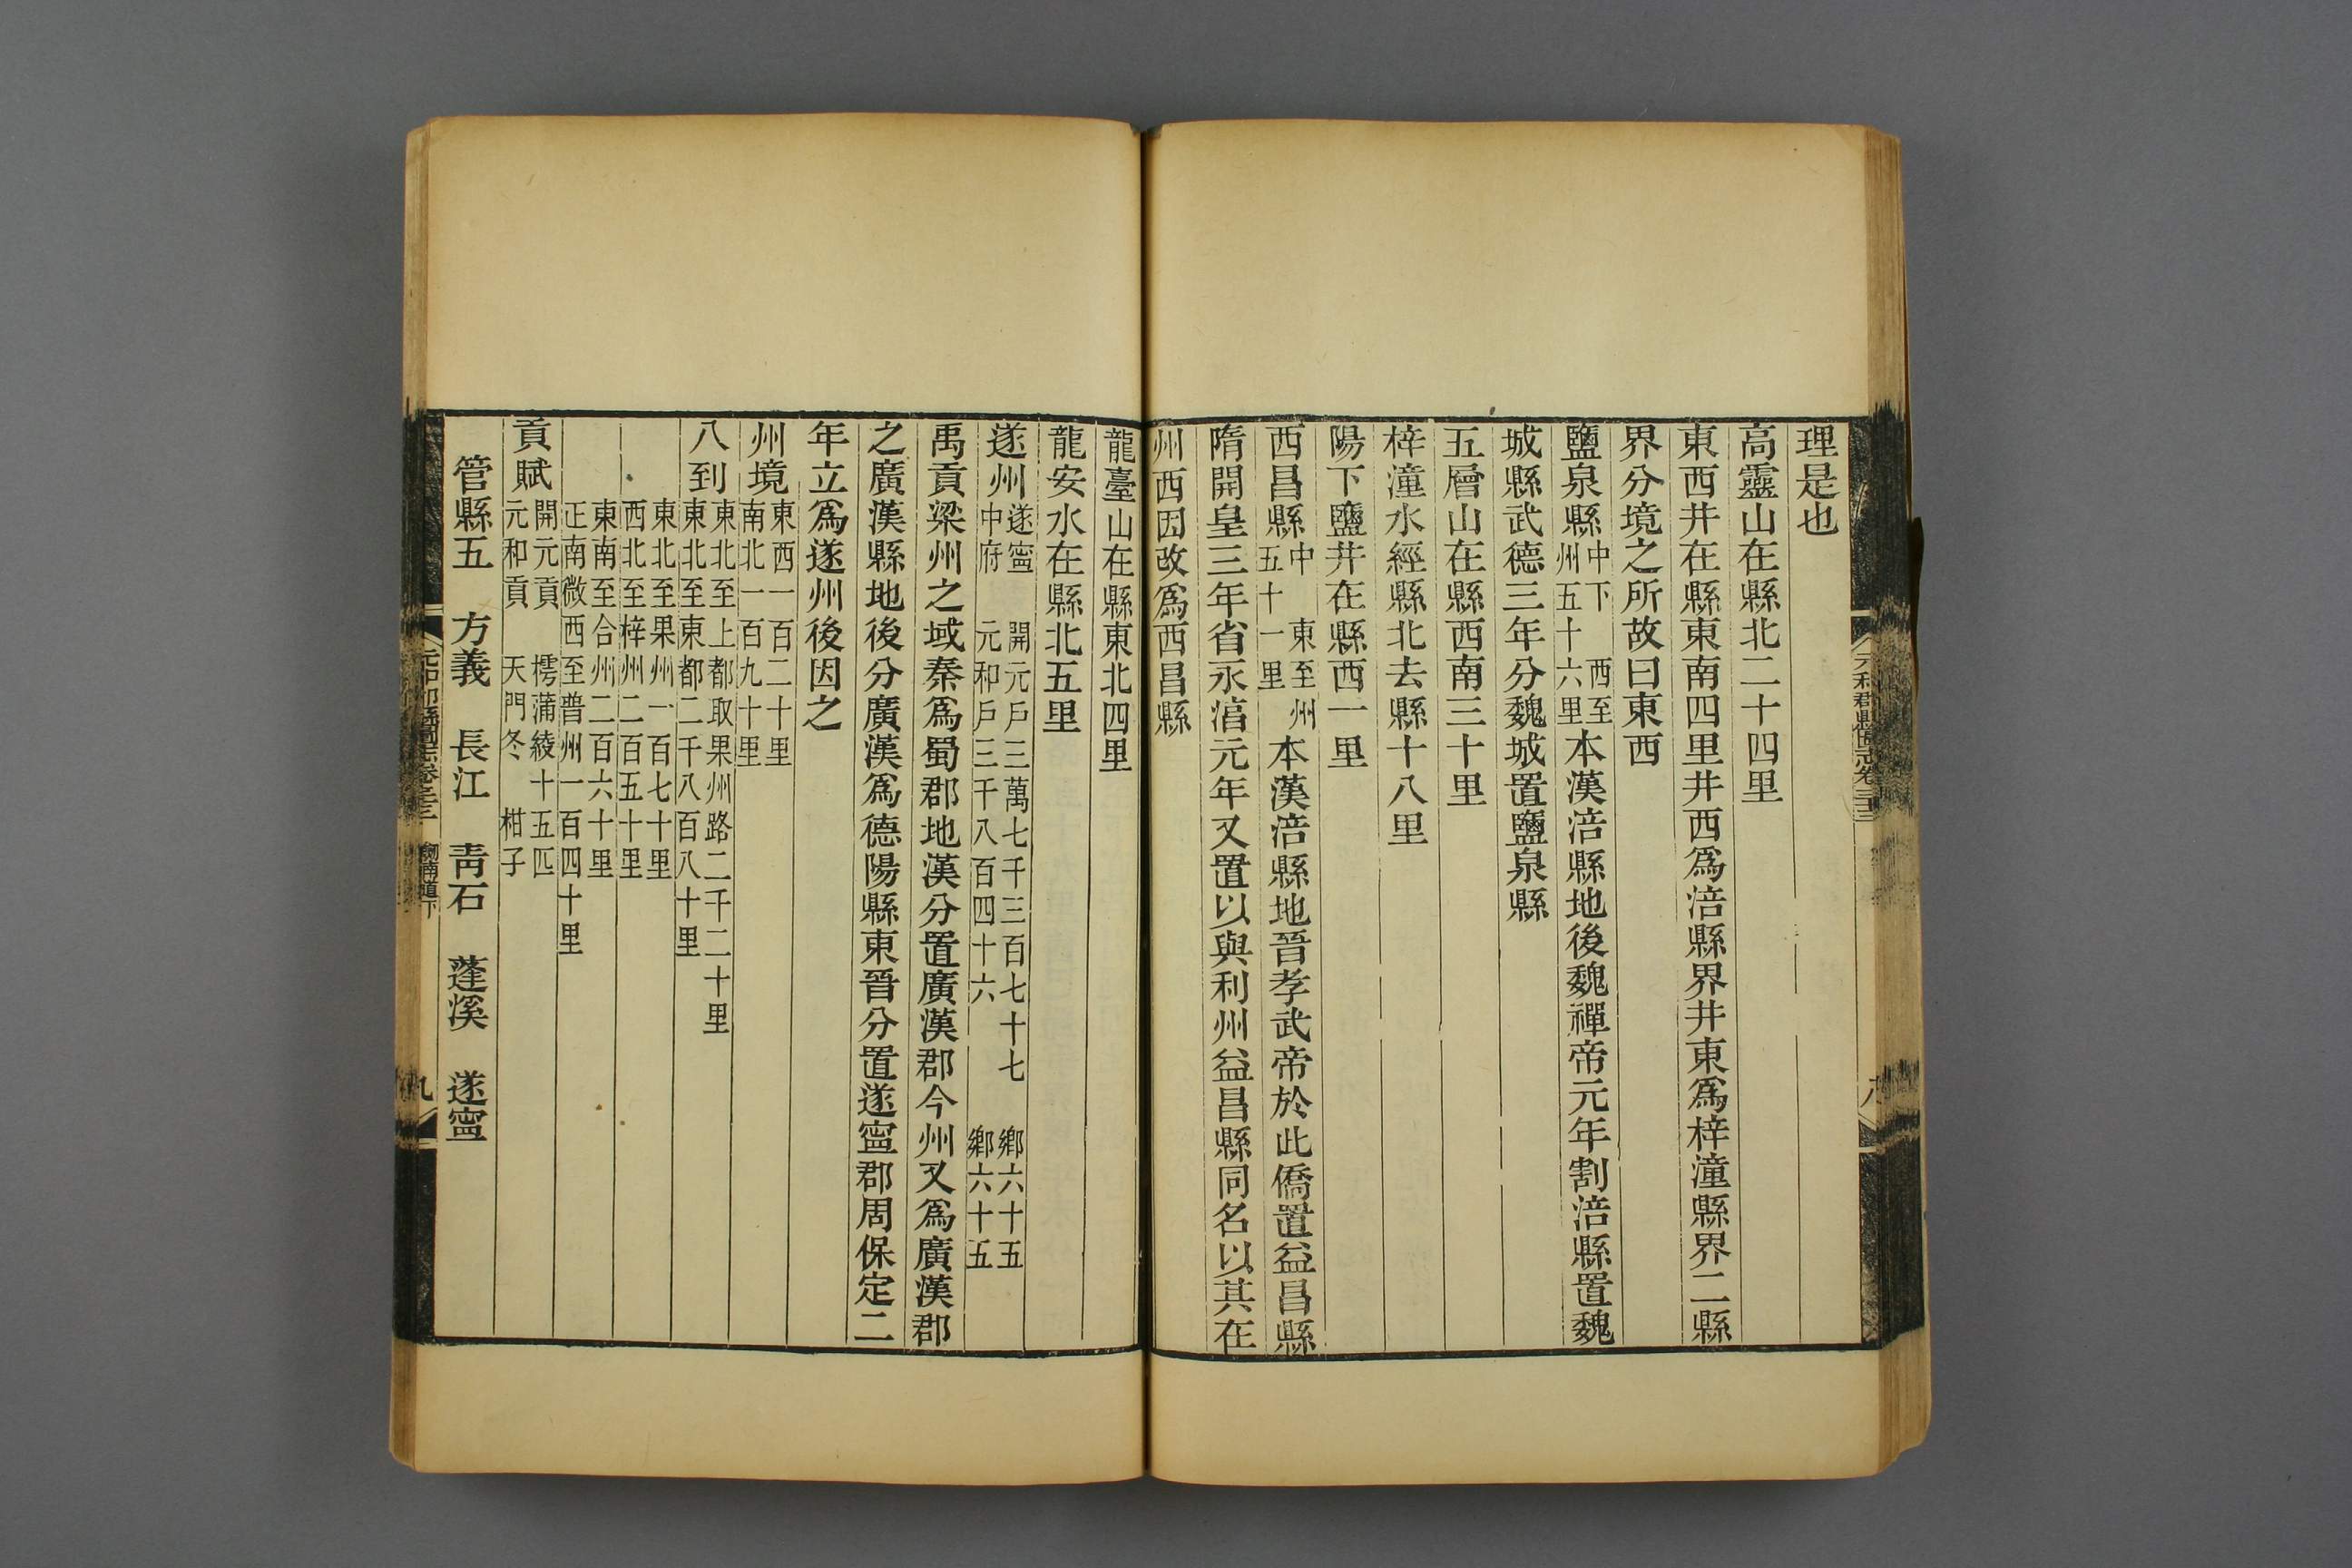 理是也
高靈山在縣北二十四里
東西井在縣東南四里井西爲涪縣界井東爲梓潼縣界二縣
界分境之所故曰東西
鹽泉縣中下 西至州五十六里本漢涪縣地後魏禪帝元年割涪縣置魏
城縣武德三年分魏城置鹽泉縣
五層山在縣西南三十里
梓潼水經縣北去縣十八里
陽下鹽井在縣西一里
西昌縣中 東至州五十一里 本漢涪縣地晉孝武帝於此僑置益昌縣
隋開皇三年省永淳元年又置以與利州益昌縣同名以其在
州西因改爲西昌縣
龍臺山在縣東北四里
龍安水在縣北五里
遂州遂寧中府 開元戶三萬七千三百七十七 鄉六十五 元和戶三千八百四十六 鄉六十五
禹貢梁州之域秦爲蜀郡地漢分置廣漢郡今州又爲廣漢郡
之廣漢縣地後分廣漢爲德陽縣東晉分置遂寧郡周保定二
年立爲遂州後因之
州境東西一百二十里南北一百九十里
八到東北至上都取果州路二千二十里東北至東都二千八百八十里
東北至果州一百七十里西北至梓州二百五十里
東南至合州二百六十里正南微西至普州一百四十里
貢賦開元貢 樗蒲綾十五匹元和貢 天門冬 柑子
管縣五 方義 長江 靑石 蓬溪 遂寧
元和郡縣圖志卷三十三 劒南道下 九